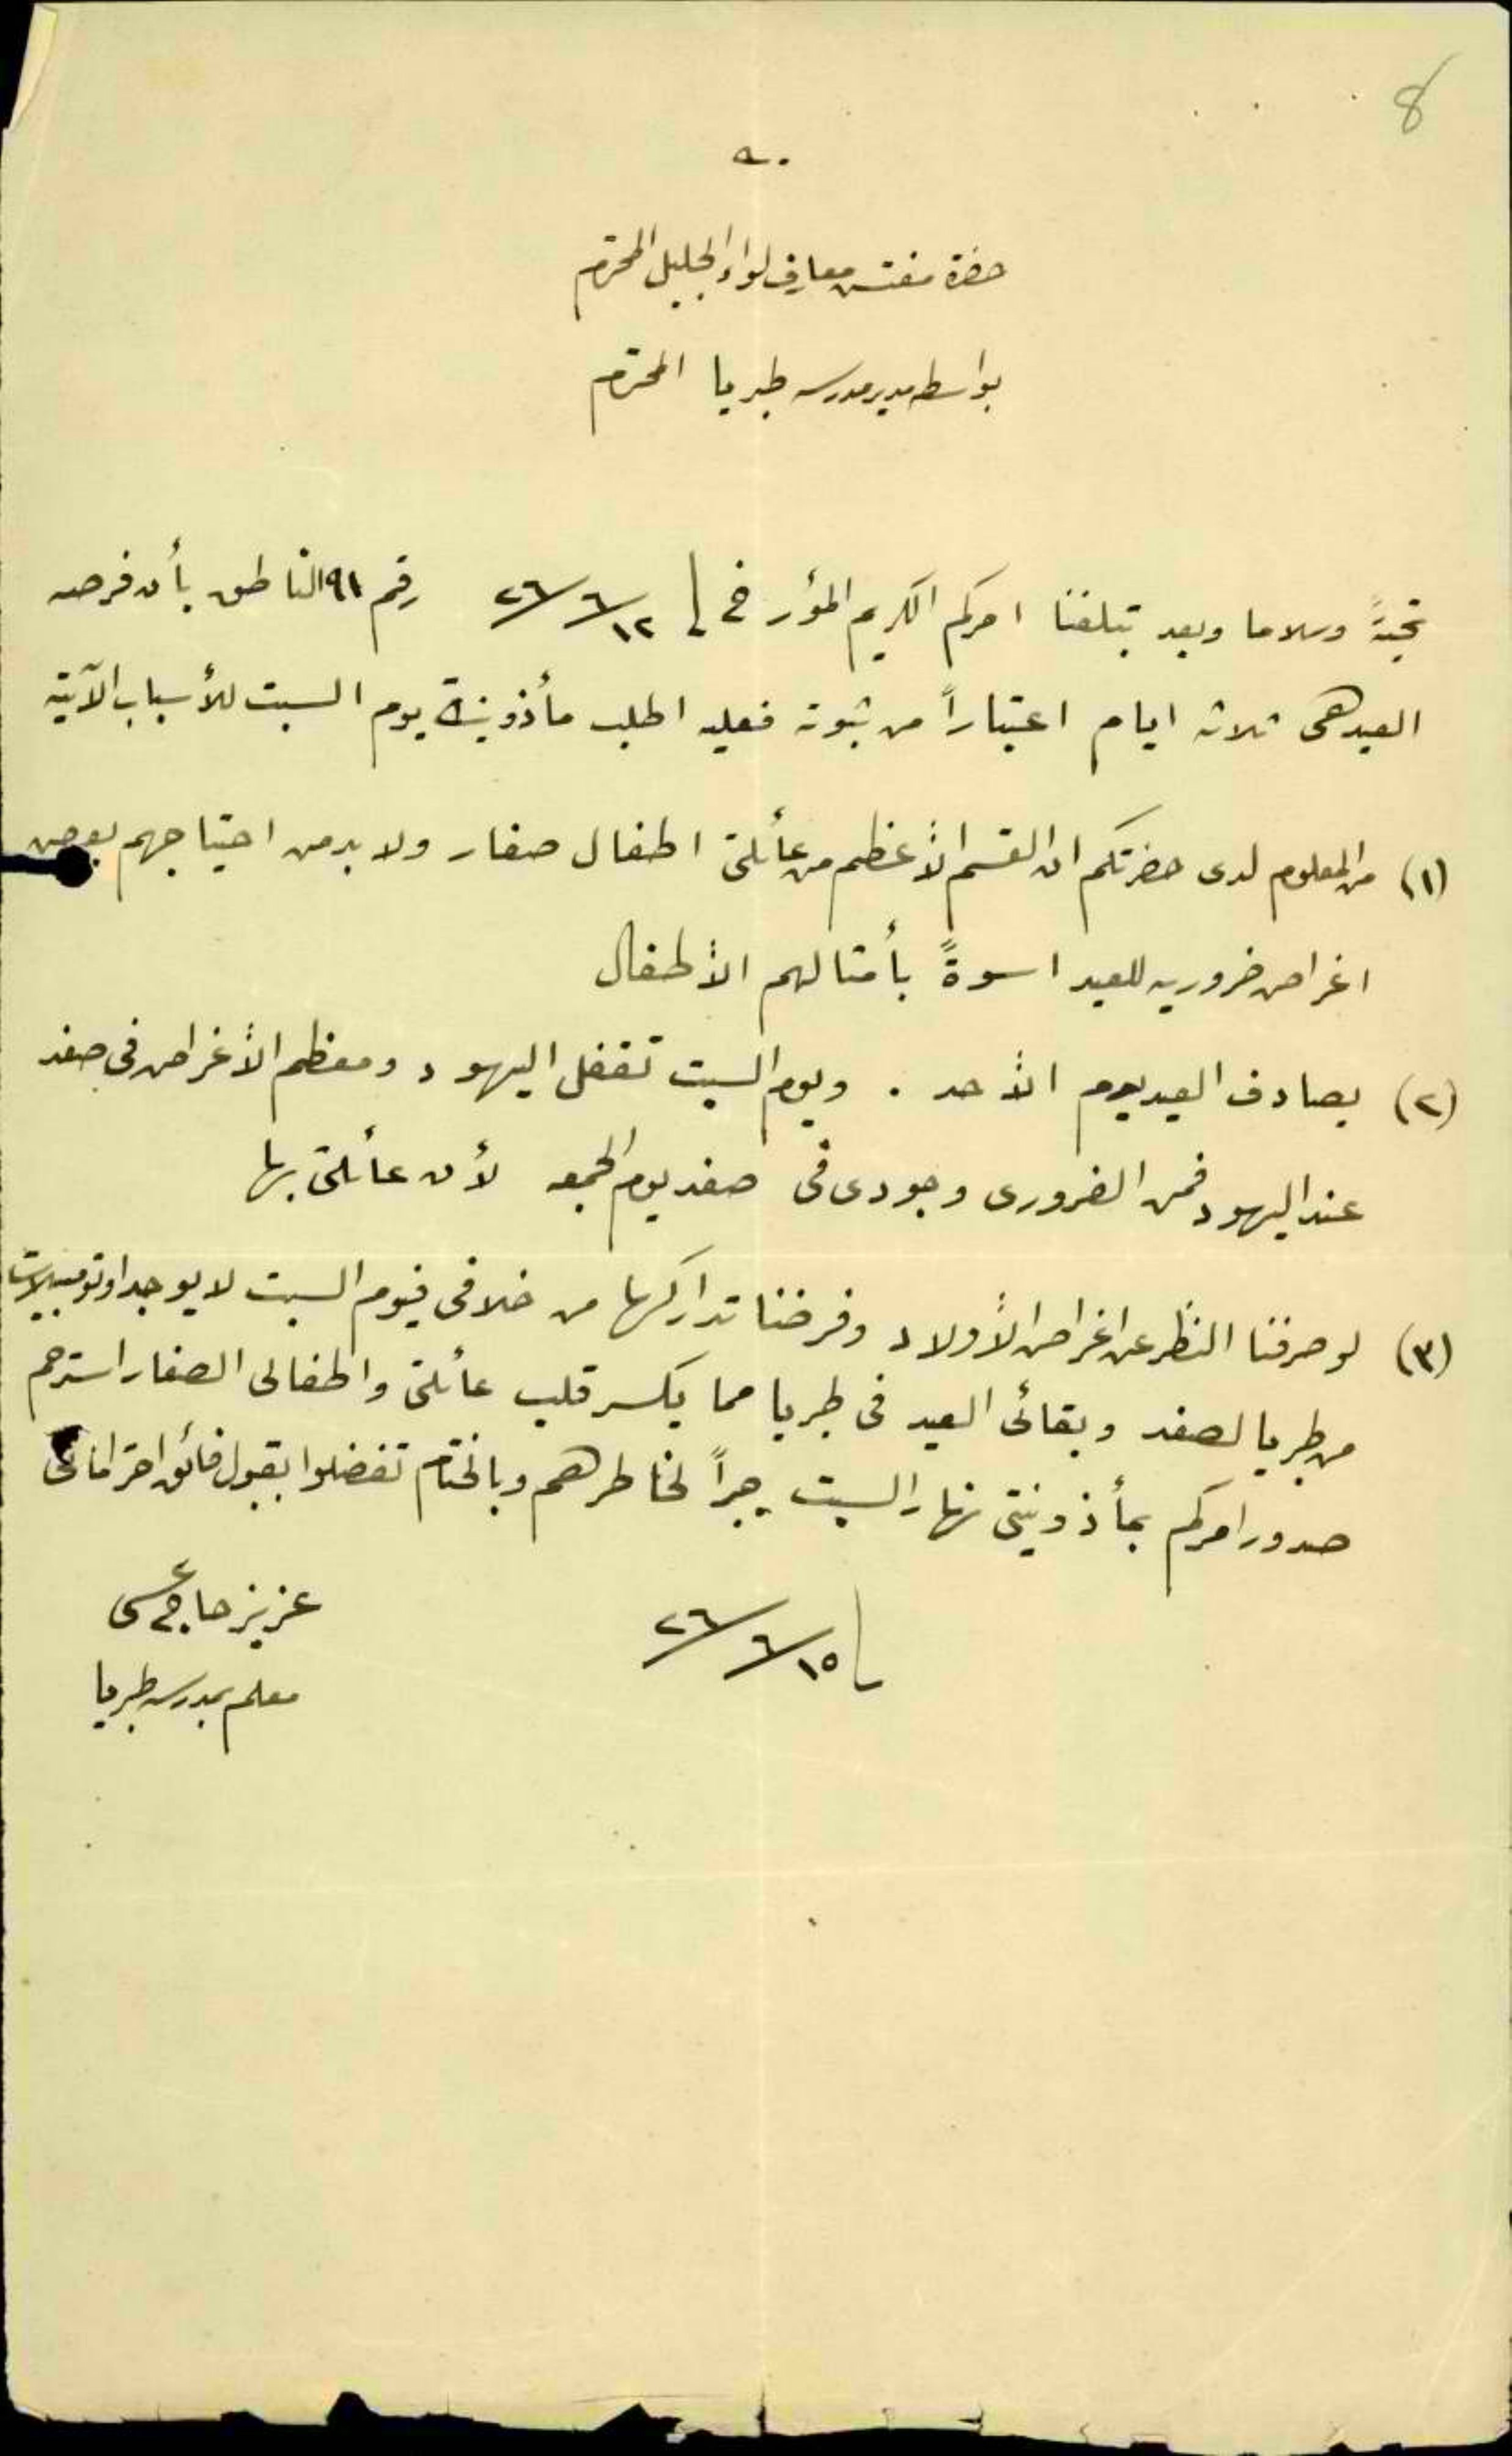 8
حضرة مفتش معارف لواء الجليل المحترم
بواسطه مدير مدرسه طبريا المحترم
تحيةً وسلاما وبعد تبلغنا امركم الكريم المؤرخ في ١٢/٦/٢٦ رقم ٩١ الناطق بأن فرصه
العيد هى ثلاثه ايام اعتباراً من ثبوته فعليه اطلب مأذونية يوم السبت للأسباب الآتية
(١) من المعلوم لدى حضرتكم ان القسم الأعظم من عائلتى اطفال صغار ولا بد من احتياجهم بعض
اغراض ضروريه للعيد اسوةً بأمثالهم الأطفال
(٢) يصادف العيد يوم الأحد . ويوم السبت تقفل اليهود ومعظم الأغراض فى صفد
عند اليهود فمن الضرورى وجودى فى صفد يوم الجمعه لأن عائلتى بها
(٣) لو صرفنا النظر عن اغراض الأولاد وفرضنا تداركها من خلافى فيوم السبت لا يوجد اوتومبيلات
من طبريا لصفد وبقائى العيد فى طبريا مما يكسر قلب عائلتى واطفالى الصغار استرحم
صدور امركم بمأذونيتى نهار السبت جبراً لخاطرهم وبالختام تفضلوا بقبول فائق احتراماتى
١٥/٦/٢٦
عزيز حاج عيسى
معلم بمدرسه طبريا